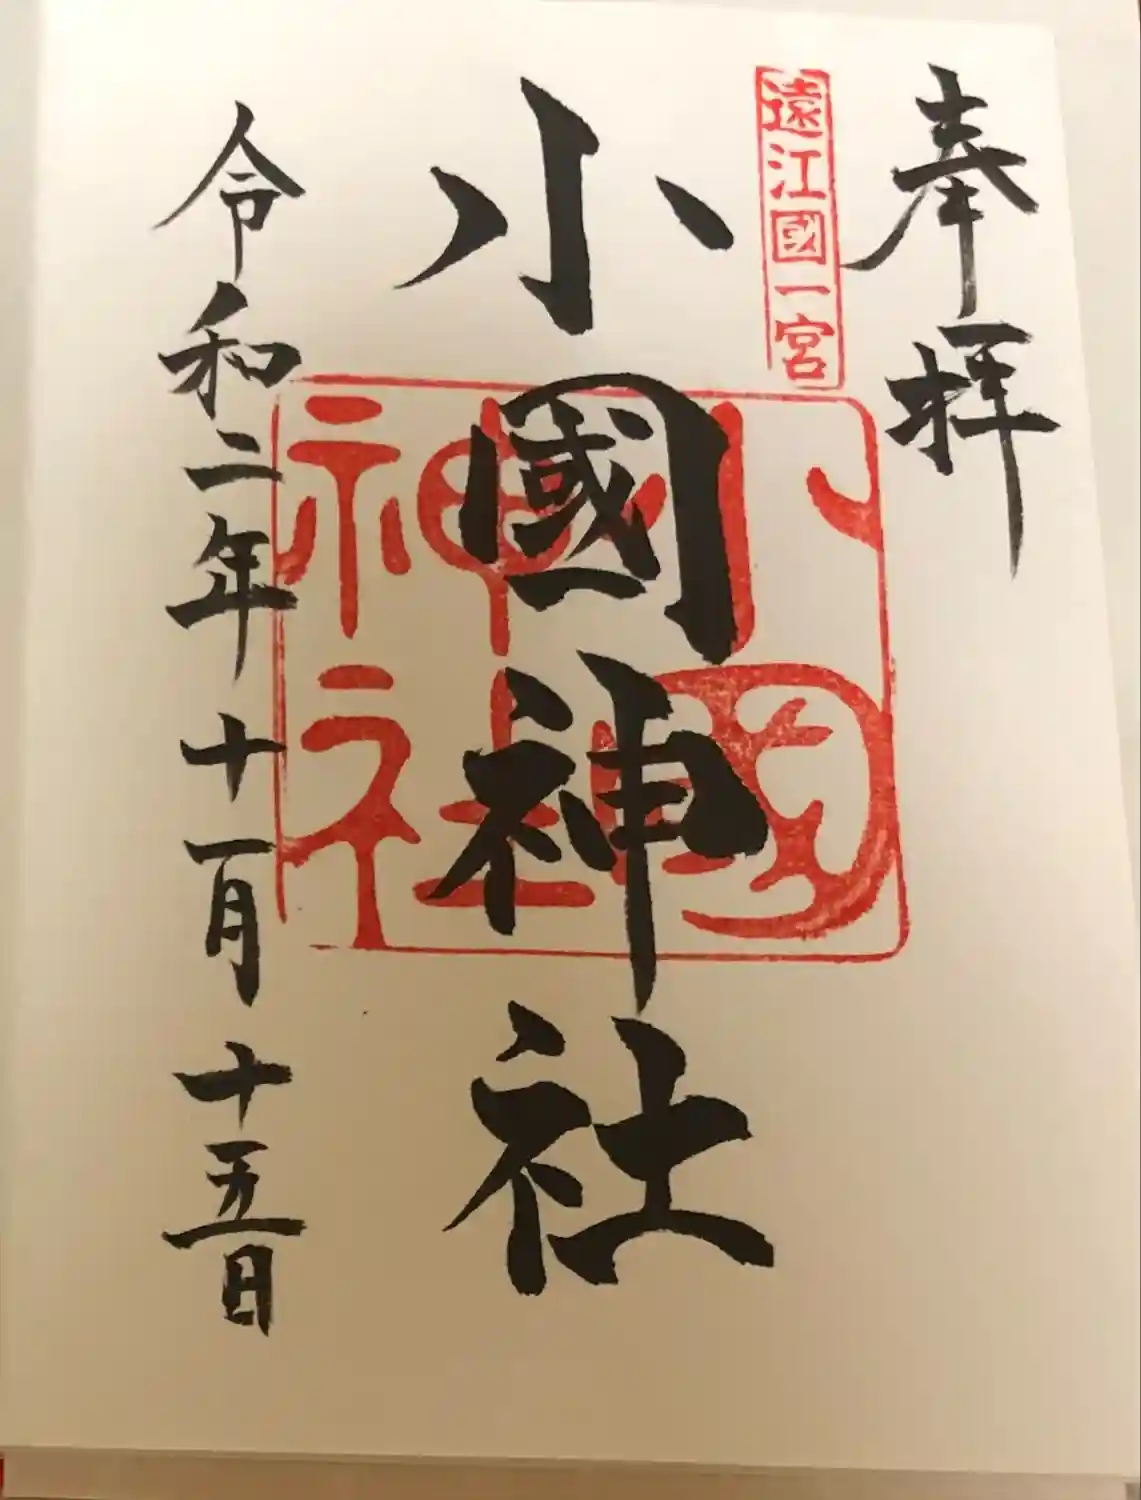 奉拝
遠江國一宮
小國神社
小國神社
令和二年十一月十五日